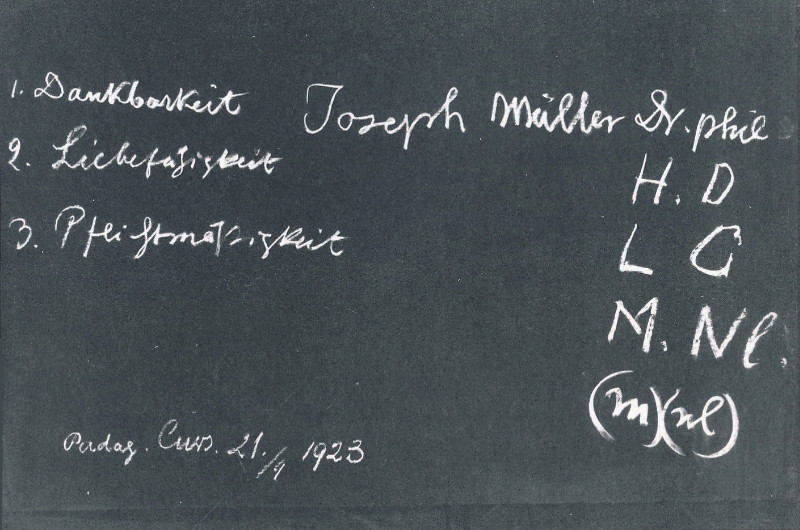 1. Dankbarkeit
2. Liebefähigkeit
3. Pflichtmäßigkeit
Joseph Müller Dr. phil
H. D
L C
M. Nl.
(m)(nl)
Pädag. Curs. 21./9 1923